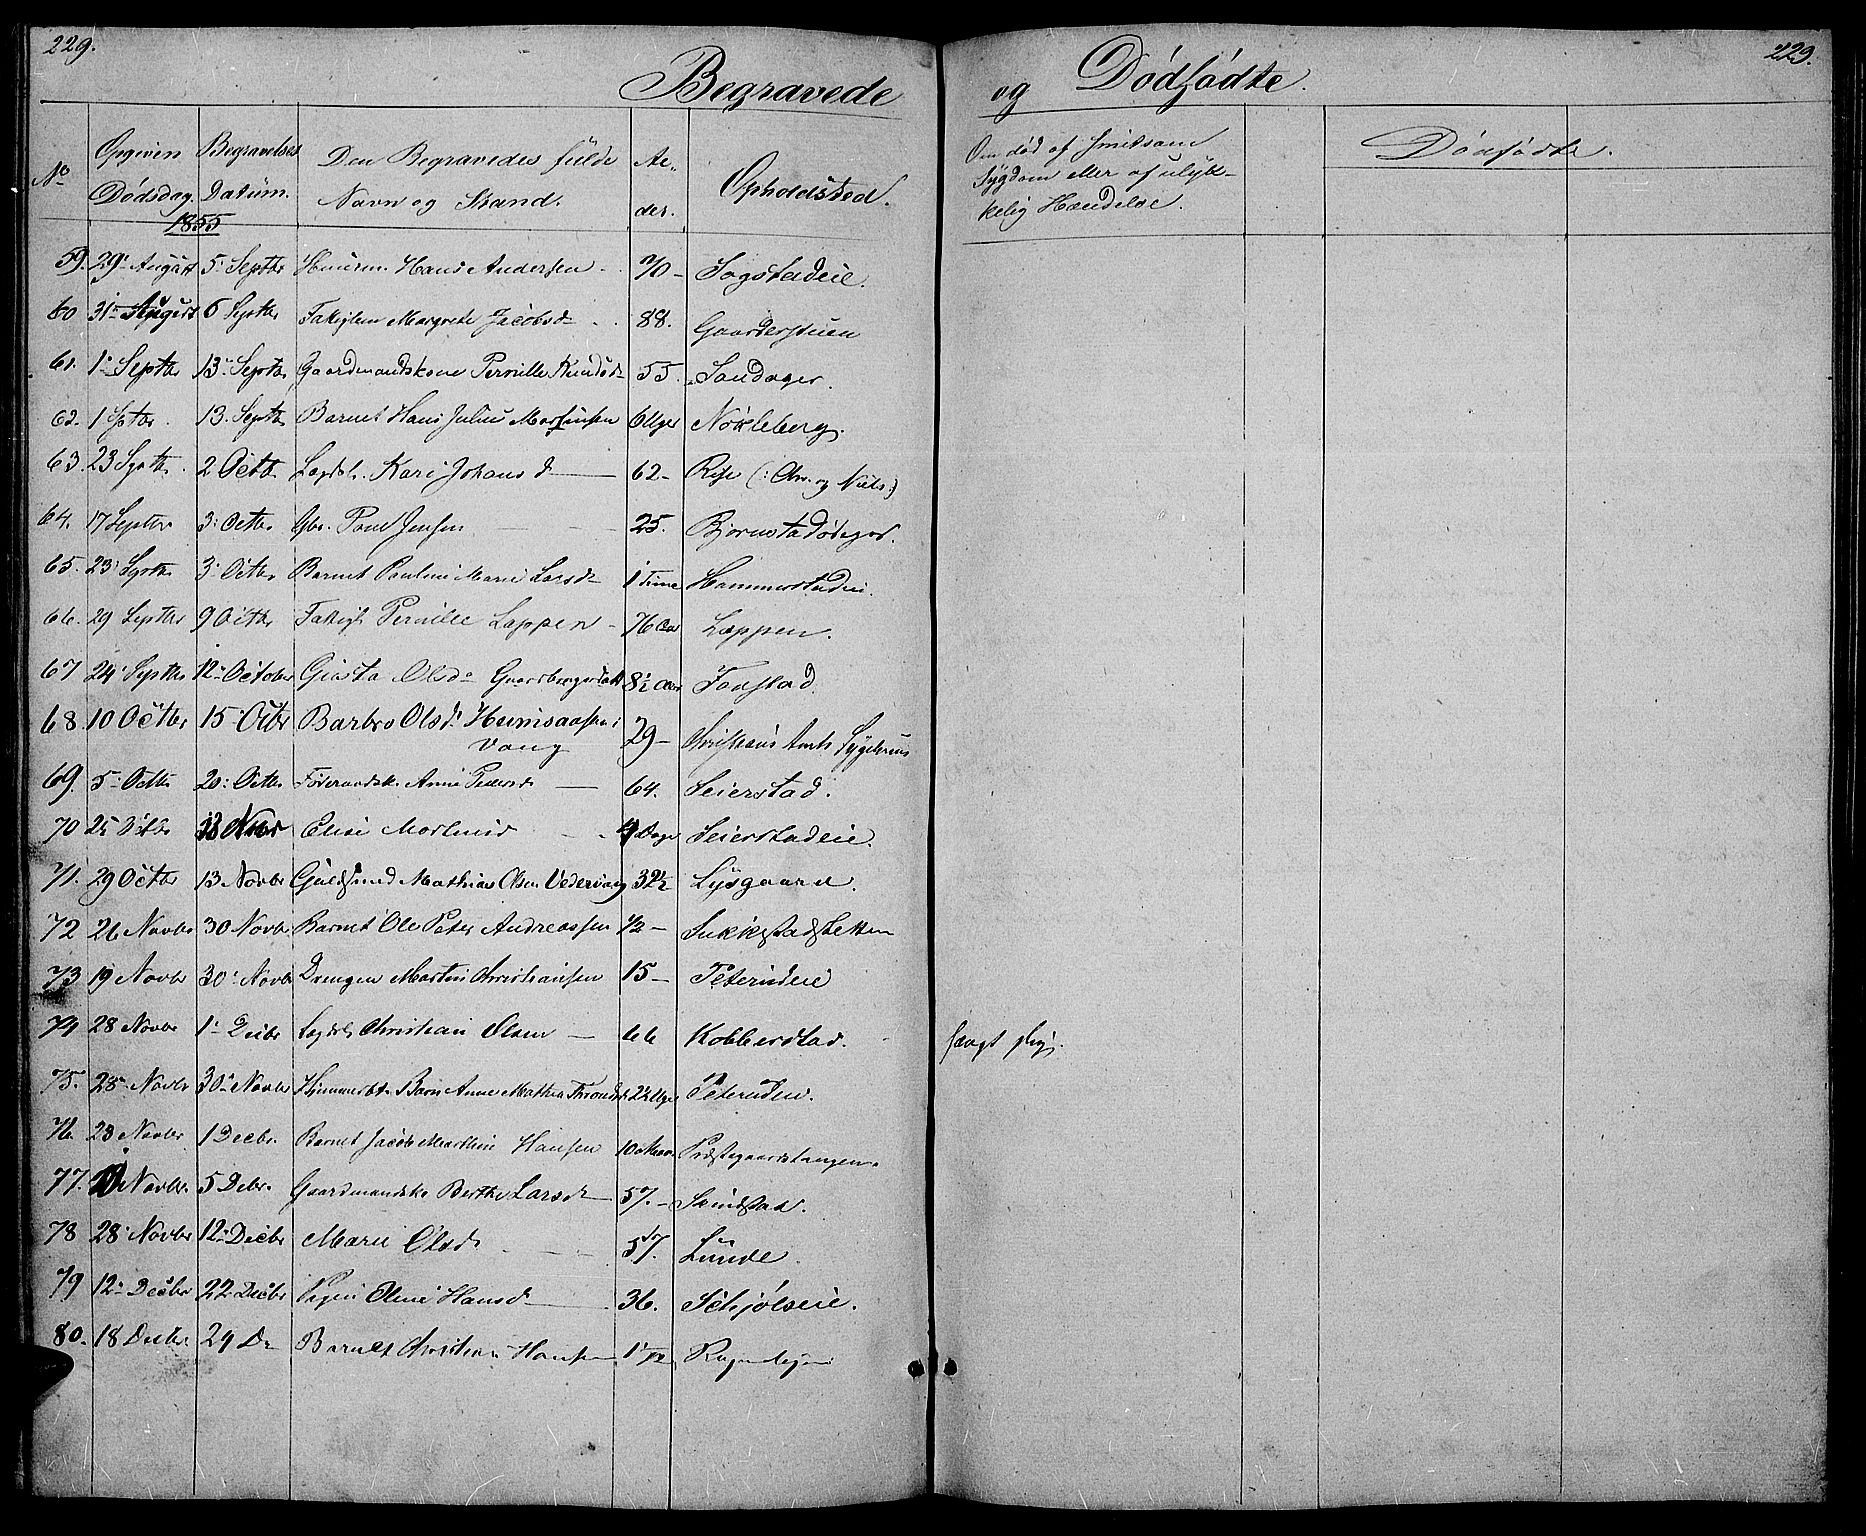 229.
229.
Begravede og Dødfødte.
No
Opgiven Dødsdag.
Begravelses Datum.
Den Begravedes fulde Navn og Stand.
Al-
der.
Opholdsted.
Om død af Smitsom
Sygdom eller af ulyk-
kelig Hændelse.
Dødfødte.
1855
59. 29 August 5 Septbr Huusm. Hans Andersen 70 Sogstadeie.
60 31 August 6 Septbr Margrethe Jacobsd 88. Gaarderstuen
61. 1 Septbr 13 Septbr Gaardmandskone Pernille Knudsd 55. Sandager.
62. 1 Sptbr. 13. Septbr Barnet Hans Julius Martinsen 6 Uger Nøkleberg.
63. 23 Septbr. 2 Octb Lægdsl. Kari Johansd 62 Rise (: Chr. og Niels:)
64. 17 Septbr 3 Octbr Gbr. Poul Jensen 25. Bjørnstadødegd.
65. 23 Septbr 3 Octbr Barnet Pauline Marie Larsd 1 Time Hammerstadeie.
66. 29 Septbr 9 Octbr Fattigl Pernille Lappen 76 Aar Lappen.
67 24 Septbr 12 October Giøsta Olsd Gaardbrugerdatt 8½ Aar Fonstad.
68. 10 Octbr 15 Octbr Barbro Olsd.
Vang 29 Christians Amts Sygehuus
69. 5 Octbr 20 Octbr Føderaadsk. Anne Pedersd 64. Seierstad.
70 25 Octbr Novbr Elise Mortensd Dage Seierstadeie.
71. 29 Octbr 13 Novbr Guldsmed Mathias Olsen Vedervang 32½ Lysgaard.
72 26 Novbr 30 Novbr Barnet Ole Peter Andreassen ½ Sukkestadsletten
73 19 Novbr 30 Novbr Drengen Martin Christiansen 15 Peterudeie
74 28 Novbr 1 Decbr Lægdsl Christian Olsen 66 Kobberstad.
75. 28 Novbr 30 Novbr Barn Anne Mathea Throndsd 2½ Uge Peteruden.
76. 23 Novbr 1 Decbr. Barnet Jacob Martin Hansen 10 Præstegaardstangen.
77. Novbr. 5 Debr. Gaardmandsko Berthe Larsd 57. Smidstad.
78 28 Novbr 12 Decbr Marie Olsd 57. Lunde.
79 12 Decbr 22 Decbr Pigen Oline Hansd 36. Schjølseie.
80. 18 Decbr. 29 D Barnet Christian Hansen